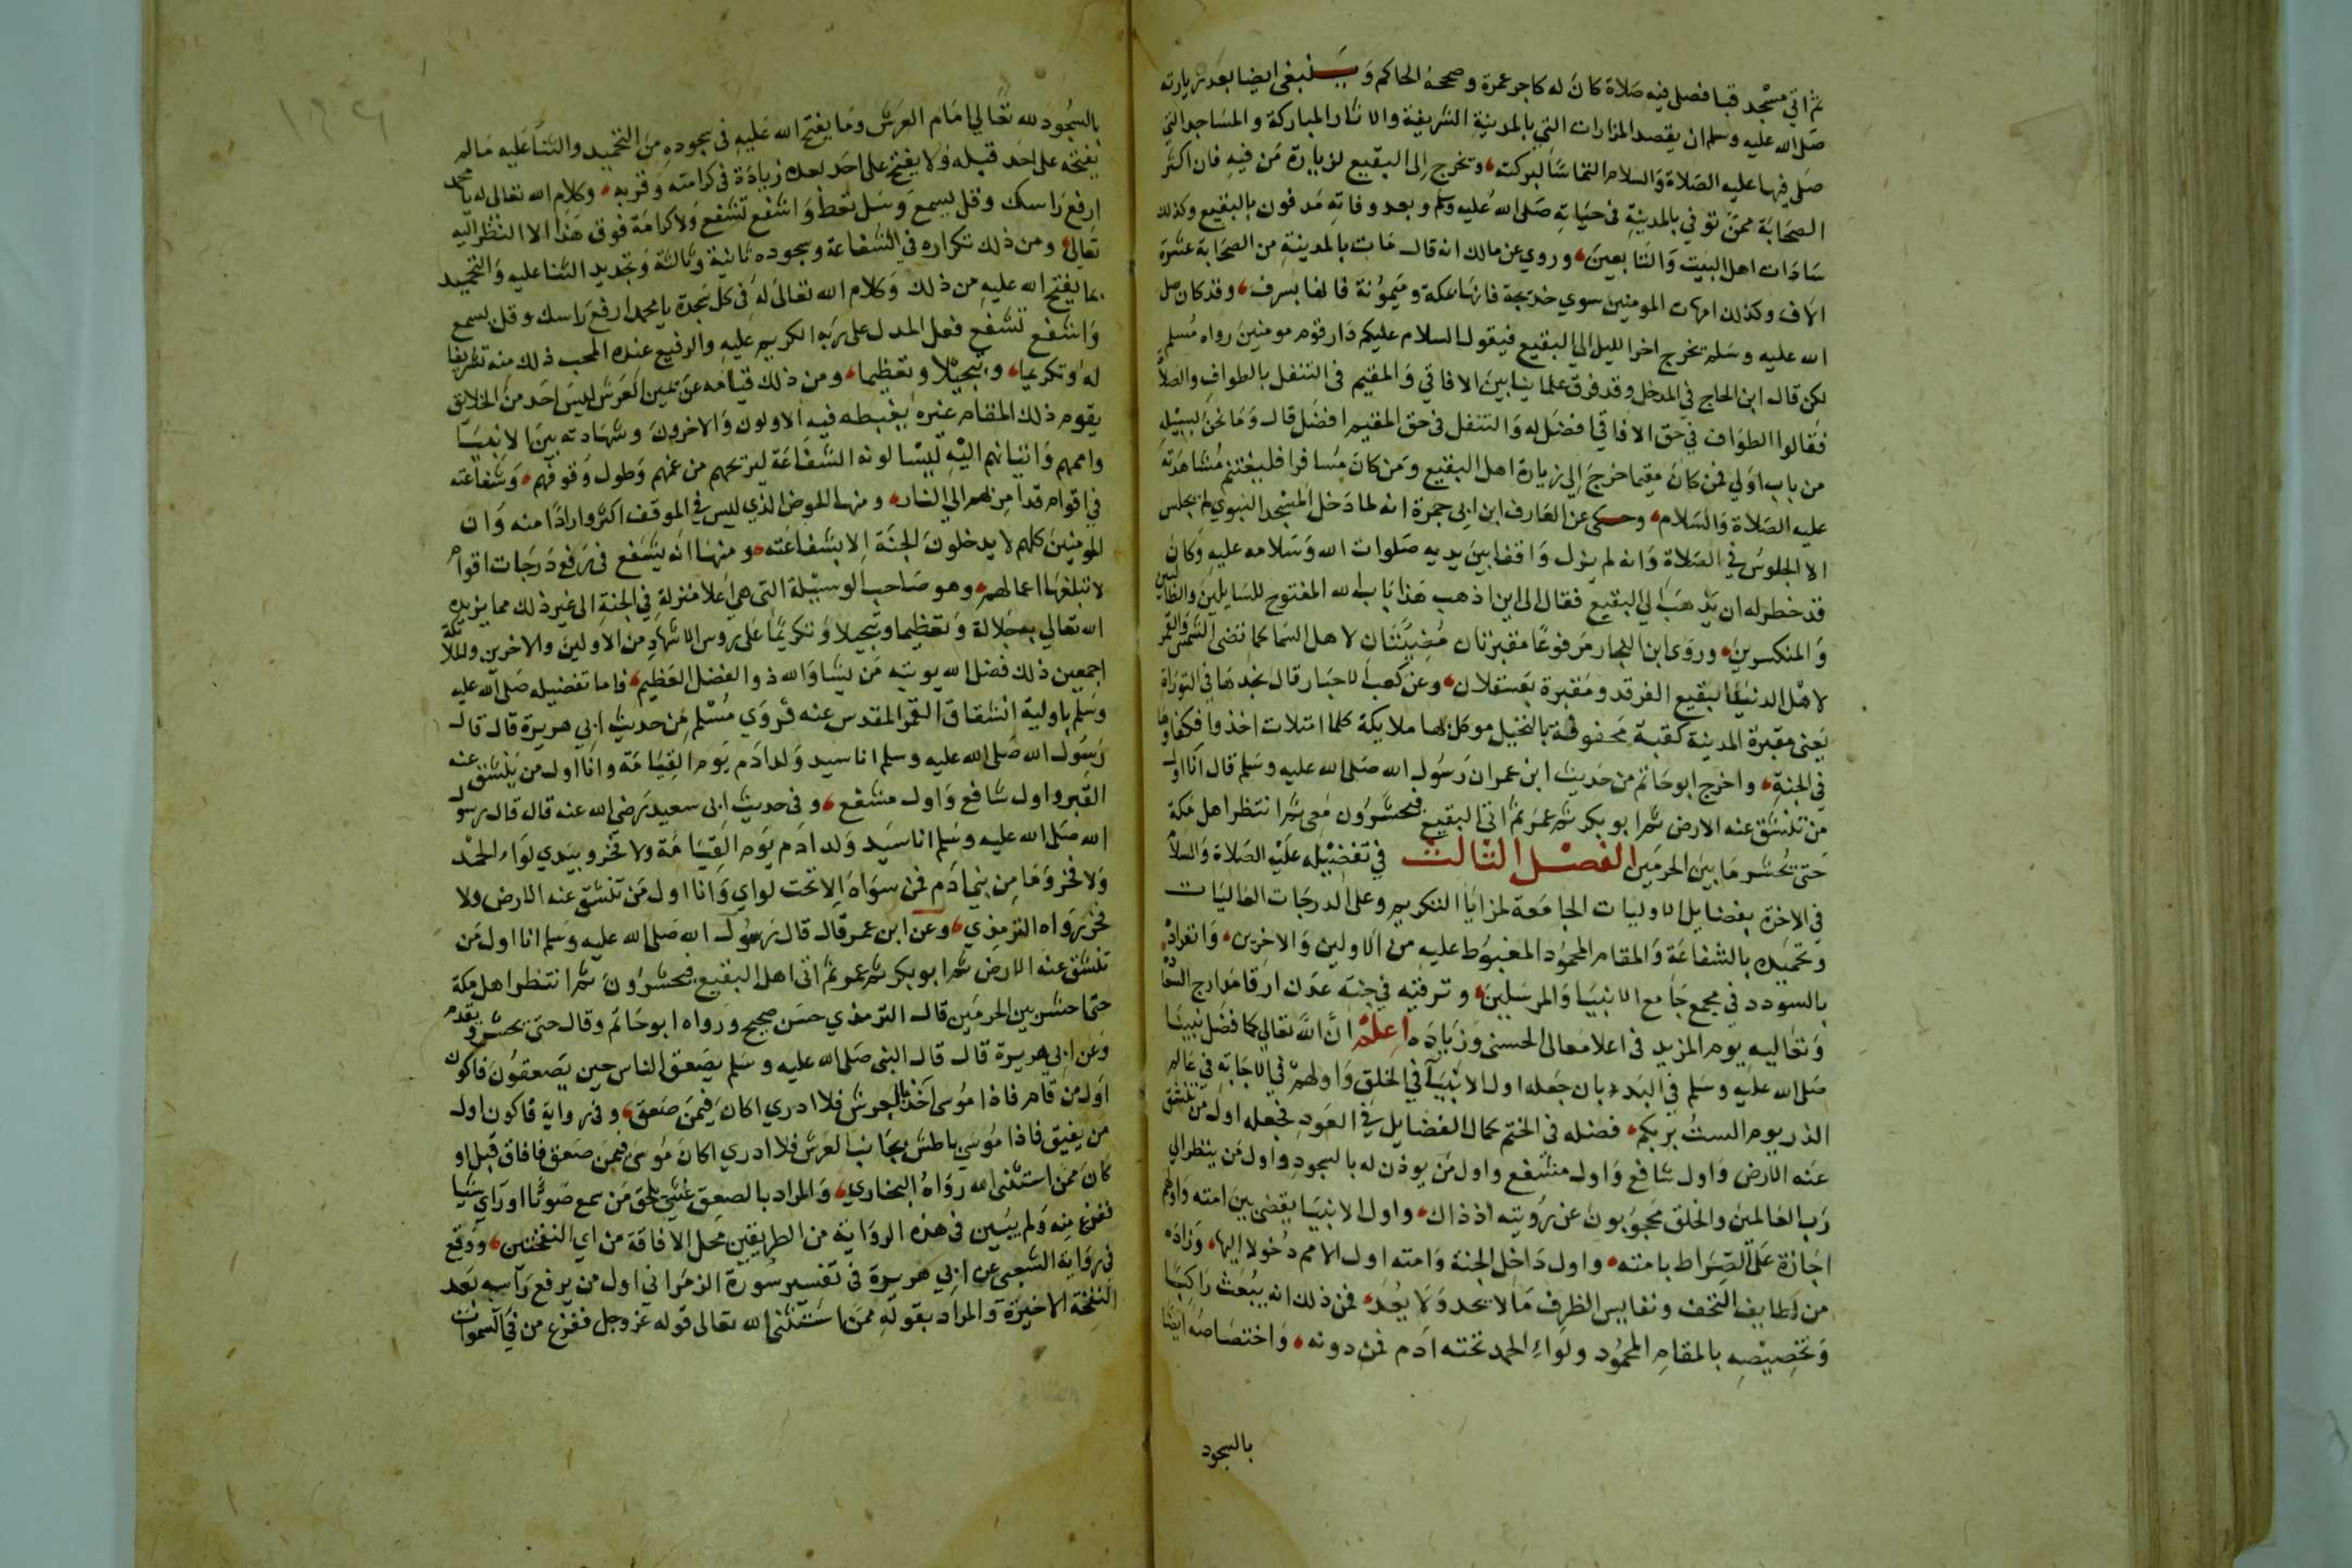 ثم اتي مسجد قبا فصلي فيه صلاة كان له كاجر عمرة وصححه الحاكم وينبغي ايضا بعد زيارته
صلي الله عليه وسلم ان يقصد المزارات التي بالمدينة الشريفة والاثار المباركة والمساجد التي
صلي فيها عليه الصلاة والسلام التماسا لبركته، ويخرج إلى البقيع لزيارة من فيه فان اكثر
الصحابة ممن توفي بالمدينة في حياته صلى الله عليه وسلم وبعد وفاته مدفون بالبقيع وكذلك
سادات اهل البيت والتابعين، وروي عن مالك انه قال مات بالمدينة من الصحابة عشرة
الاف وكذلك امهات المومنين سوي خديجة فانها بمكة وميمونة فانها بسرف، وقد كان صلى
الله عليه وسلم يخرج اخر الليل الي البقيع فيقول السلام عليكم دار قوم مومنين رواه مسلم
لكن قال ابن الحاج في المدخل وقد فرق علماينا بين الافاقي والمقيم في التنفل بالطواف والصلاة
فقالوا الطواف في حق الافاقي افضل له والتنفل في حق المقيم افضل قال وما نحن بسبيله
من باب اولي فمن كان مقيما خرج إلي زيارة اهل البقيع ومن كان مسافرا فليغتنم مشاهدته
عليه الصلاة والسلام، وحكى عن العارف ابن ابي جمرة انه لما دخل المسجد النبوي لم يجلس
الا الجلوس في الصلاة وانه لم يزل واقفا بين يديه صلوات الله وسلامه عليه وكان
قد خطر له ان يذهب الي البقيع فقال الى اين اذهب هذا باب الله المفتوح للسايلين والطالبين
والمنكسرين، وروى ابن النجار مرفوعا مقبرتان مضيئتان لاهل السما كما تضي الشمس والقمر
لاهل الدنيا البقيع الغرقد ومقبرة بعسقلان، وعن كعب الاحبار قال نجدها في التوراة
يعني مقبرة المدينة كقبة محفوفة بالنخيل موكل بها ملايكة كلما امتلات اخذوا فكفاوها
في الجنة، واخرج ابو حاتم من حديث ابن عمر ان رسول الله صلى الله عليه وسلم قال انا اول
من تنشق عنه الارض ثم ابو بكر ثم عمر ثم اتي البقيع فيحشرون معي ثم انتظر اهل مكة
حتي نحشر ما بين الحرمين الفصل الثالث في تفضيله عليه الصلاة والسلام
في الاخرة بفضايل الاوليات الجامعة لمزايا التكريم وعلى الدرجات العاليات
وتحميده بالشفاعة والمقام المحمود المغبوط عليه من الاولين والاخرين، وانفراده
بالسودد في مجمع جامع الانبيا والمرسلين، وترقيه في جنة عدن ارقا مدارج السعادة
وتعاليه يوم المزيد في اعلا معالى الحسنى وزيادة اعلم ان الله تعالي كما فضل نبينا
صلى الله عليه وسلم في البدء بان جعله اول الانبيا في الخلق واولهم في الاجابة في عالم
الذر يوم الست بربكم، فضله في الختم كمال الفضايل في العود فجعله اول من تنشق
عنه الارض واول شافع واول مشفع واول من يوذن له بالسجود واول من ينظر الي
رب العالمين والخلق محجوبون عن رؤيته اذ ذاك، واول الانبيا يقضى بين امته واولهم
اجازة على الصراط بامته، واول داخل الجنة وامته اول الامم دخولا اليها، وزاده
من لطايف التحف ونفايس الظرف ما لا يحد ولا يعد، فمن ذلك انه يبعث راكبا
وتخصيصه بالمقام المحمود ولواء الحمد تحته ادم فمن دونه، واختصاصه ايضا
بالسجود
بالسجود لله تعالي امام العرش وما يفتح الله عليه في سجوده من التحميد والثنا عليه ما لم
يفتحه على احد قبله ولا يفتح على احد بعده زيادة في كرامته وقربه، وكلام الله تعالى له يا محمد
ارفع راسك وقل يسمع وسل تعط واشفع تشفع ولا كرامة فوق هذا الا النظر اليه
تعالي، ومن ذلك تكراره في الشفاعة وسجوده ثانية وثالثة وتجديد الثنا عليه والتحميد
بما يفتح الله عليه من ذلك وكلام الله تعالى له في كل سجدة يا محمد ارفع راسك وقل يسمع
واشفع تشفع فعل المدل على ربه الكريم عليه والرفيع عنده المحب ذلك منه تشريفا
له وتكريما، وتبجيلا وتعظيما، ومن ذلك قيامه عن يمين العرش ليس احد من الخلايق
يقوم ذلك المقام غيره يغبطه فيه الاولون والاخرون وشهادته بين الانبيا
واممهم واتيانهم اليه ليسالونه الشفاعة ليريحهم من غمهم وطول وقوفهم، وشفاعته
في اقوام قد امر بهم الي النار، ومنها الحوض الذي ليس في الموقف اكثر واردا منه وان
المومنين كلهم لا يدخلون الجنة إلا بشفاعته، ومنها انه يشفع في رفع درجات اقوام
لا تبلغها اعمالهم، وهو صاحب الوسيلة التي هي اعلا منزلة في الجنة الى غير ذلك مما يزيده
الله تعالي به جلالة وتعظيما وتبجيلا وتكريما على روس الاشهاد من الاولين والاخرين والملائكة
اجمعين ذلك فضل الله يوتيه من يشا والله ذو الفضل العظيم، فاما تفضيله صلى الله عليه
وسلم باولية انشقاق القبر المقدس عنه فروي مسلم من حديث ابي هريرة قال قال
رسول الله صلى الله عليه وسلم انا سيد ولد ادم يوم القيامة وانا اول من ينشق عنه
القبر واول شافع واول مشفع، وفي حديث ابى سعيد رضى الله عنه قال قال رسول
الله صلى الله عليه وسلم انا سيد ولد ادم يوم القيامة ولا فخر وبيدي لواء الحمد
ولا فخر وما من بني ادم فمن سواه إلا تحت لواي وانا اول من تنشق عنه الارض ولا
فخر رواه الترمذي، وعن ابن عمر قال قال رسول الله صلى الله عليه وسلم انا اول من
تنشق عنه الارض ثم ابو بكر ثم عمر ثم اتى اهل البقيع فيحشرون ثم انتظر اهل مكة
حتى احشر بين الحرمين قال الترمذي حسن صحيح ورواه ابو حاتم وقال حتى نحشر وتقدم
وعن ابي هريرة قال قال النبى صلى الله عليه وسلم يصعق الناس حين يصعقون فاكون
اول من قام فاذا موسى آخذ بالعرش فلا ادري اكان فيمن صعق، وفي رواية فاكون اول
من يفيق فاذا موسى باطش بجانب العرش فلا ادري اكان موسى فيمن صعق فافاق قبلي او
كان ممن استثنى الله رواه البخاري، والمراد بالصعق غشي يلحق من سمع صوتا او رأي شيا
ففزع منه ولم يبين في هذه الرواية من الطريقين محل الافاقة من اي النفختين، ووقع
في رواية الشعبى عن ابي هريرة في تفسير سورة الزمر اني اول من يرفع رأسه بعد
النفخة الاخيرة والمراد بقوله ممن استثنى الله تعالى قوله عز وجل ففزع من في السموات